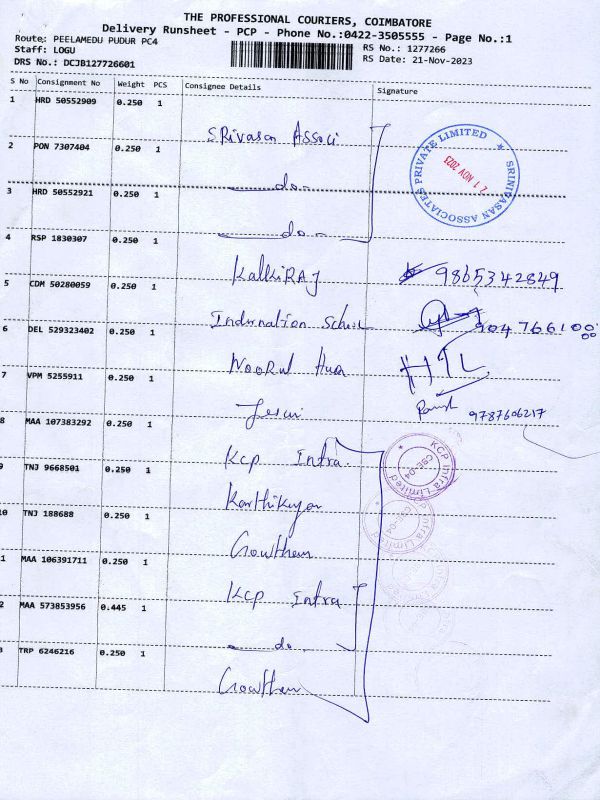 THE PROFESSIONAL COURIERS, COIMBATORE
Delivery Runsheet - PCP - Phone No.:0422-3505555 - Page No.:1
Route: PEELAMEDU PUDUR PC4
RS No.: 1277266
Staff: LOGU
RS Date: 21-Nov-2023
DRS No.: DCJB127726601
S No Consignment No Weight PCS Consignee Details Signature
1 HRD 50552909 0.250 1 SRivasan Associ
2 PON 7307404 0.250 1 do
SRINIVASAN ASSOCIATES PRIVATE LIMITED
21 NOV 2023
3 HRD 50552921 0.250 1 do
4 RSP 1830307 0.250 1 KalkiRAJ 9865342849
5 CDM 50280059 0.250 1
6 DEL 529323402 0.250 1 NooRul Huda
7 VPM 5255911 0.250 1 9787606217
8 MAA 107383292 0.250 1 Kcp Infra
KCP Infra Limited
CBE-04
9 TNJ 9668501 0.250 1 Karthikeyan
KCP Infra Limited
CBE-04
10 TNJ 188688 0.250 1 Gowtham
1 MAA 106391711 0.250 1 Kcp Infra
2 MAA 573853956 0.445 1 do
3 TRP 6246216 0.250 1 Gowtham